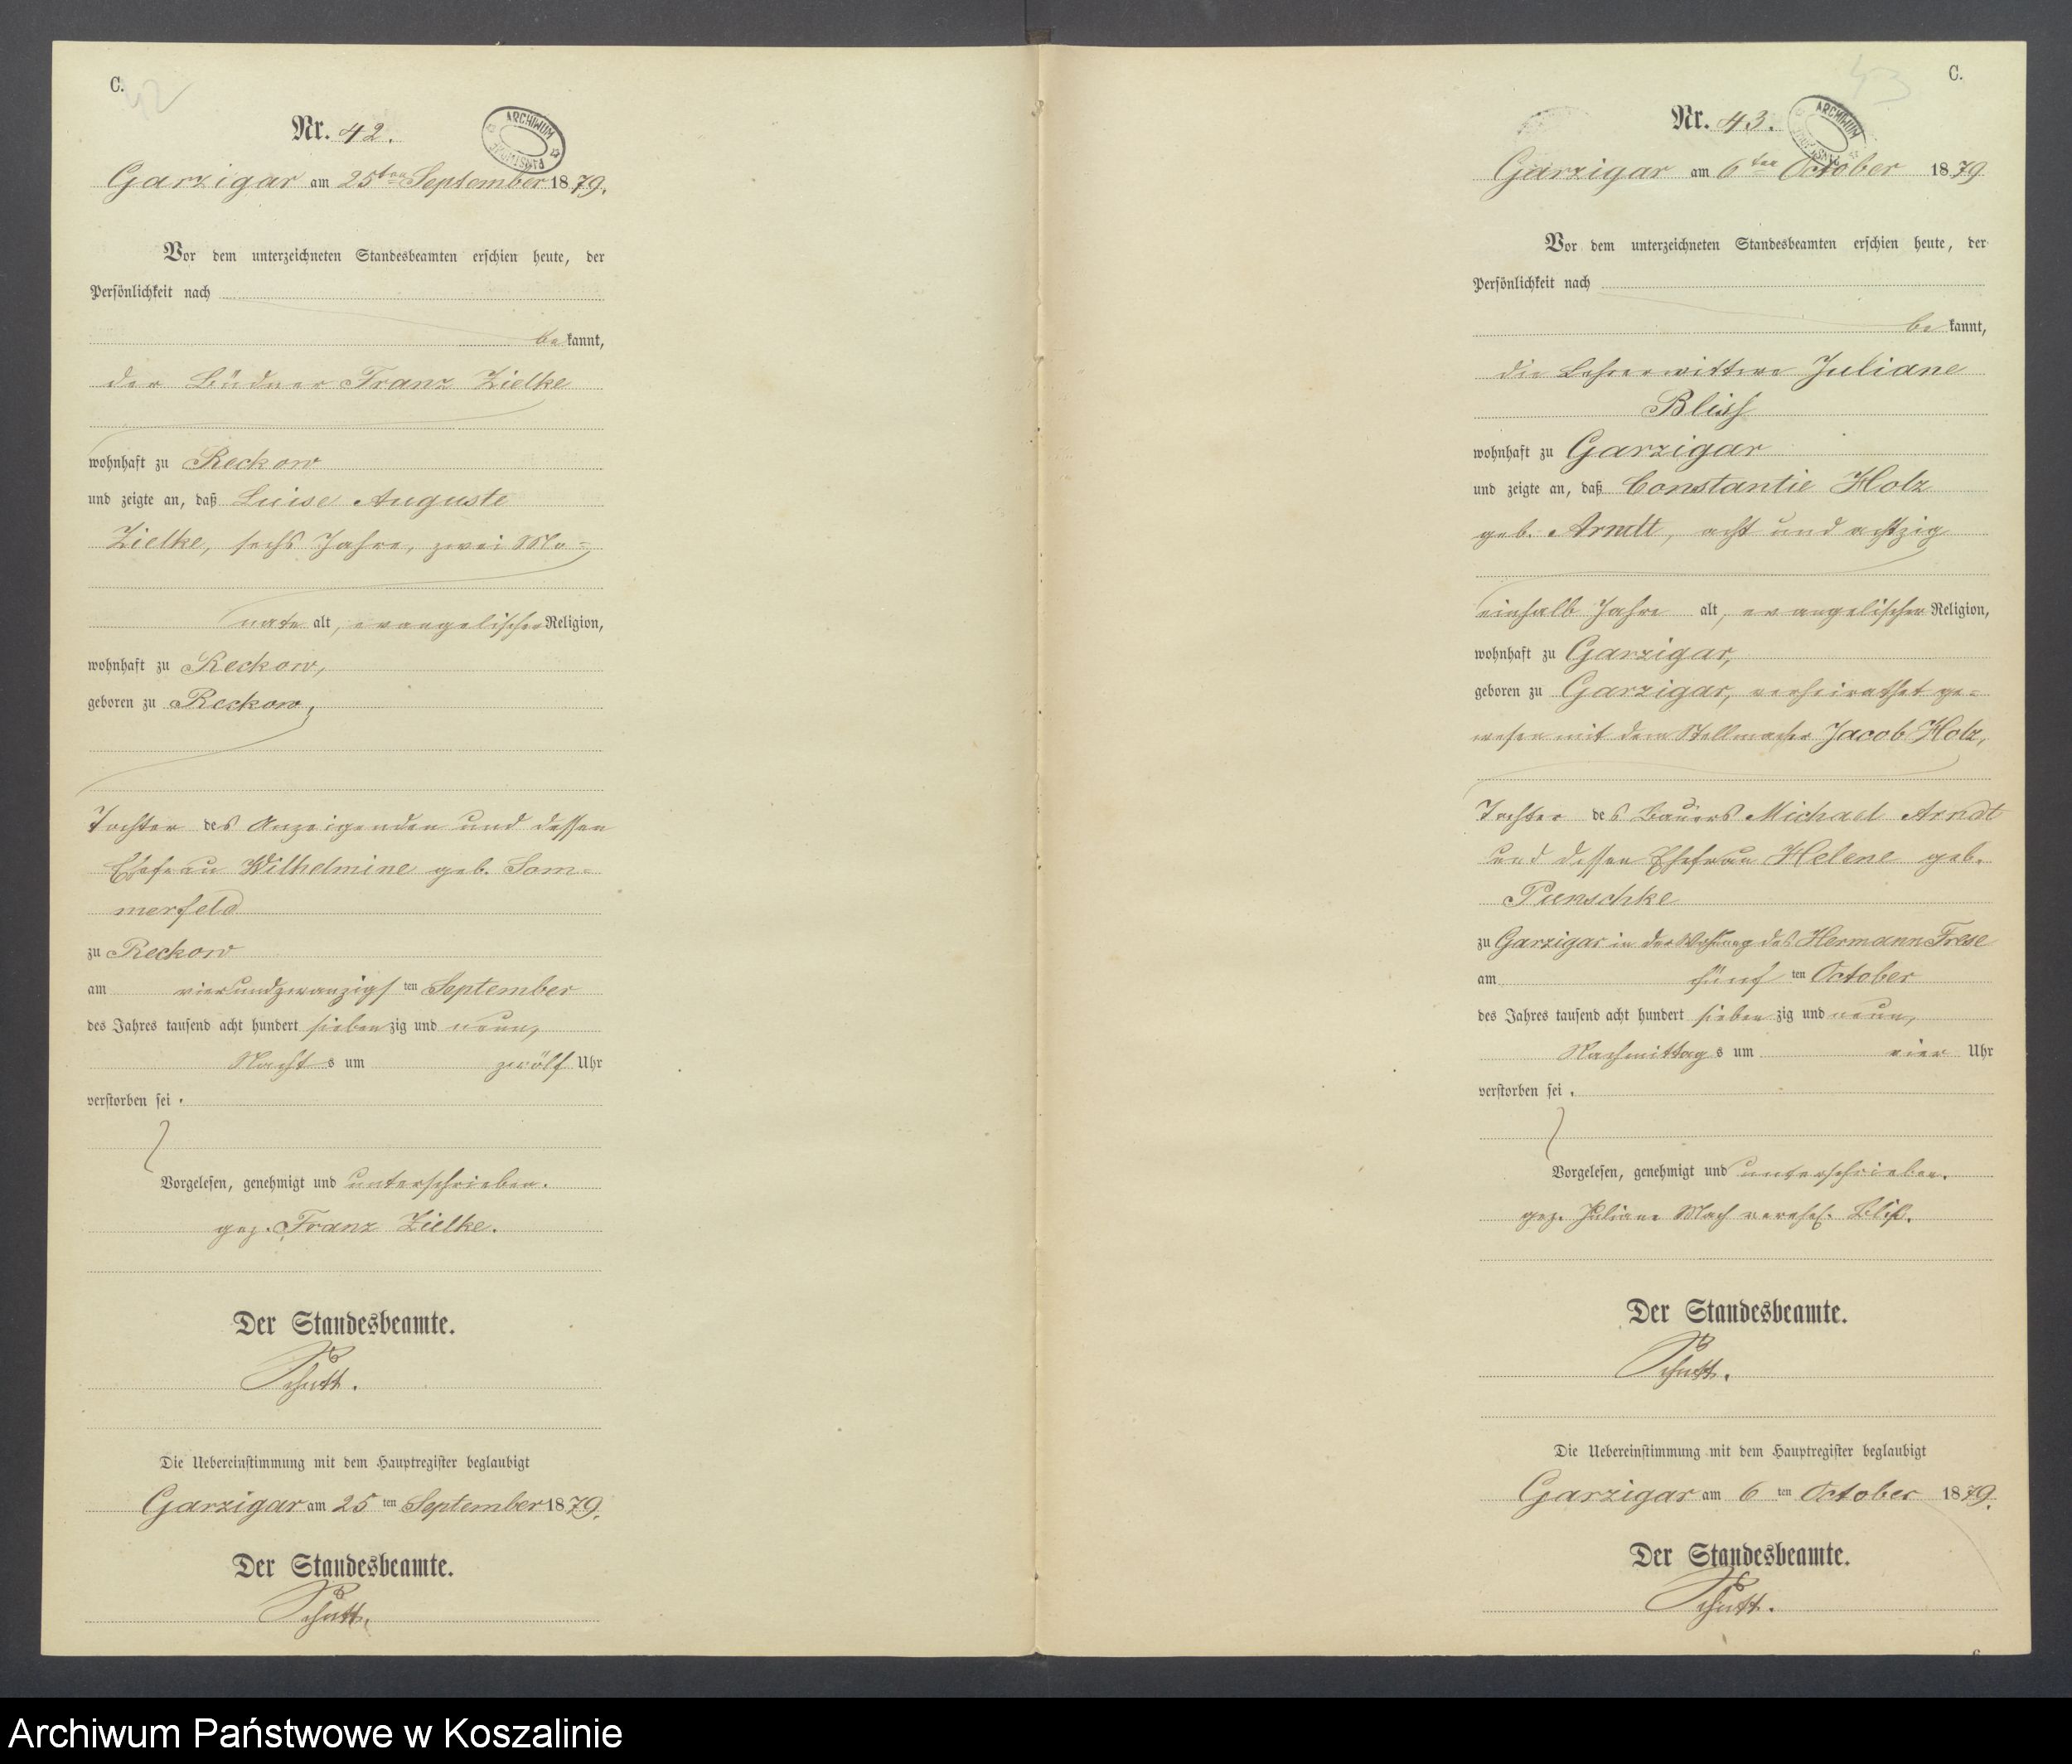 C.
42
Nr. 42.
ARCHIWUM PAŃSTWOWE
Garzigar am 25ten September 1879.
Vor dem unterzeichneten Standesbeamten erschien heute, der
Persönlichkeit nach
bekannt,
der Büdner Franz Zielke
wohnhaft zu Reckow
und zeigte an, daß Luise Auguste
Zielke, sechs Jahre, zwei Mo-
nate alt, evangelischer Religion,
wohnhaft zu Reckow,
geboren zu Reckow,
Tochter des Anzeigenden und dessen
Ehefrau Wilhelmine geb. Som-
merfeld
zu Reckow
am vierundzwanzigsten September
des Jahres tausend acht hundert siebenzig und neun,
Nachts um zwölf Uhr
verstorben sei.
Vorgelesen, genehmigt und unterschrieben.
gez. Franz Zielke.
Der Standesbeamte.
Schutt.
Die Uebereinstimmung mit dem Hauptregister beglaubigt
Garzigar am 25ten September 1879.
Der Standesbeamte.
Schutt.
C.
43
Nr. 43.
ARCHIWUM PAŃSTWOWE
Garzigar am 6ten October 1879
Vor dem unterzeichneten Standesbeamten erschien heute, der
Persönlichkeit nach
bekannt,
die Lehrerwittwe Juliane
Bliss
wohnhaft zu Garzigar
und zeigte an, daß Constantie Holz
geb. Arndt, acht und achtzig
einhalb Jahre alt, evangelischer Religion,
wohnhaft zu Garzigar,
geboren zu Garzigar, verheirathet ge-
wesen mit dem Stellmacher Jacob Holz,
Tochter des Bauers Michael Arndt
und dessen Ehefrau Helene geb.
Punschke
zu Garzigar in der Wohnung des Hermann Frese
am fünften October
des Jahres tausend acht hundert siebenzig und neun,
Nachmittags um vier Uhr
verstorben sei.
Vorgelesen, genehmigt und unterschrieben.
gez. Juliane Mach verehel. Bliß.
Der Standesbeamte.
Schutt.
Die Uebereinstimmung mit dem Hauptregister beglaubigt
Garzigar am 6ten October 1879.
Der Standesbeamte.
Schutt.
Archiwum Państwowe w Koszalinie